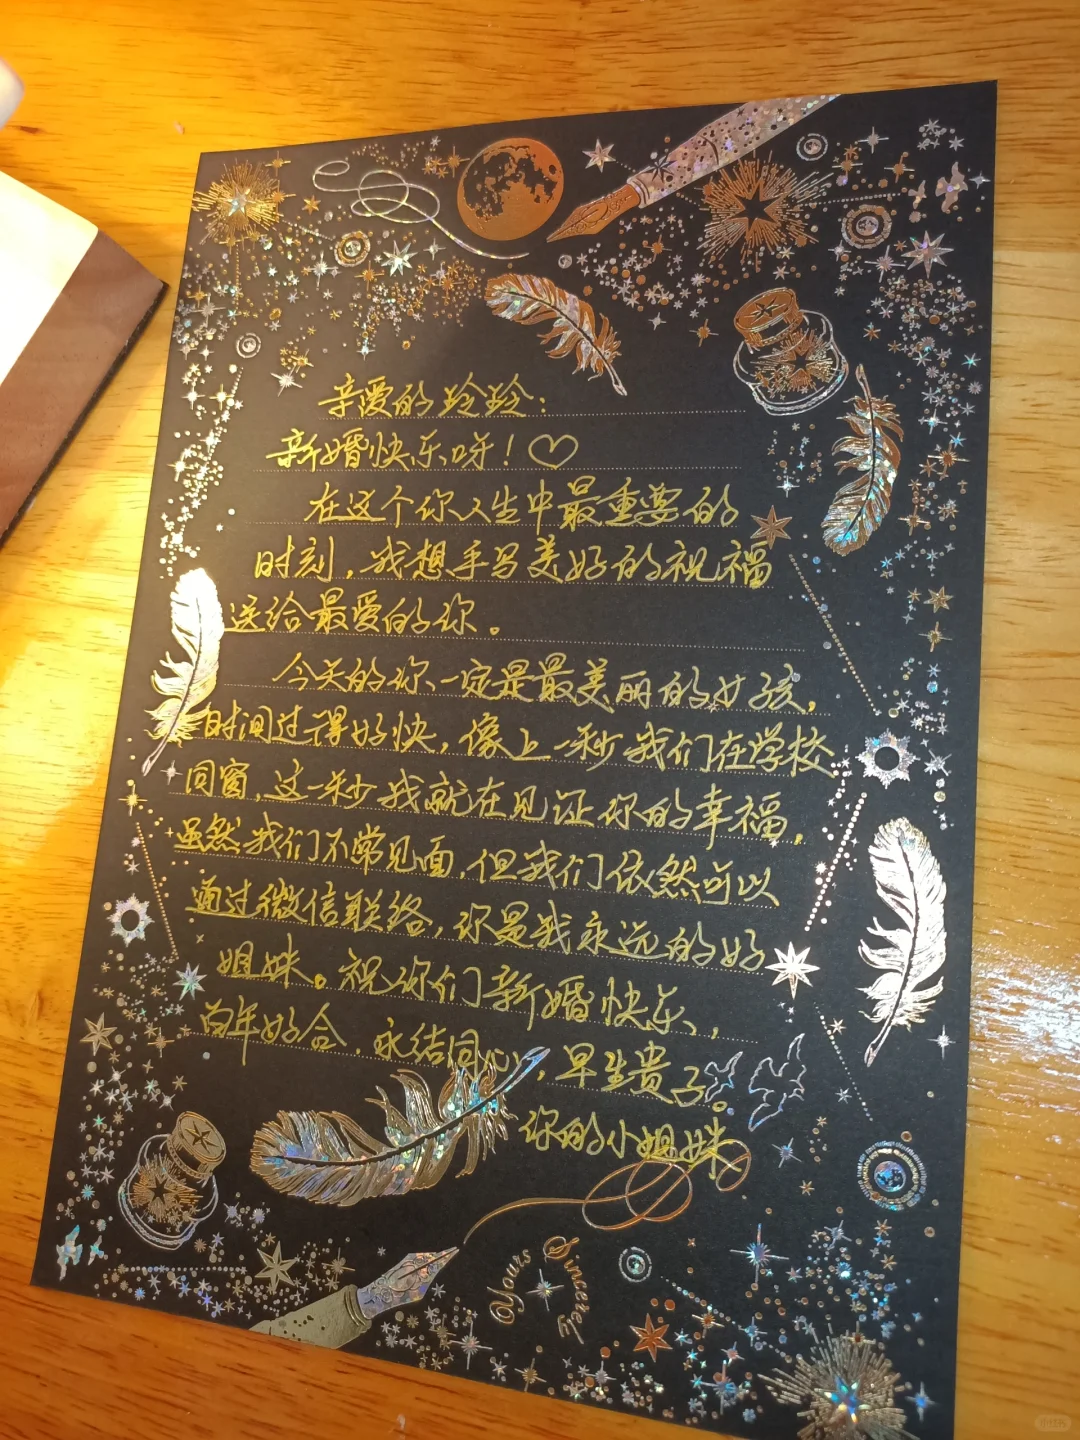 亲爱的玲玲:
新婚快乐呀!♡
在这个你人生中最重要的
时刻,我想手写美好的祝福
送给最爱的你。
今天的你一定是最美丽的女孩,
时间过得好快,像上一秒我们在学校
同窗,这一秒我就在见证你的幸福,
虽然我们不常见面,但我们依然可以
通过微信联络,你是我永远的好
姐妹。祝你们新婚快乐,
百年好合,永结同心,早生贵子。
你的小姐妹
Yours Sincerely